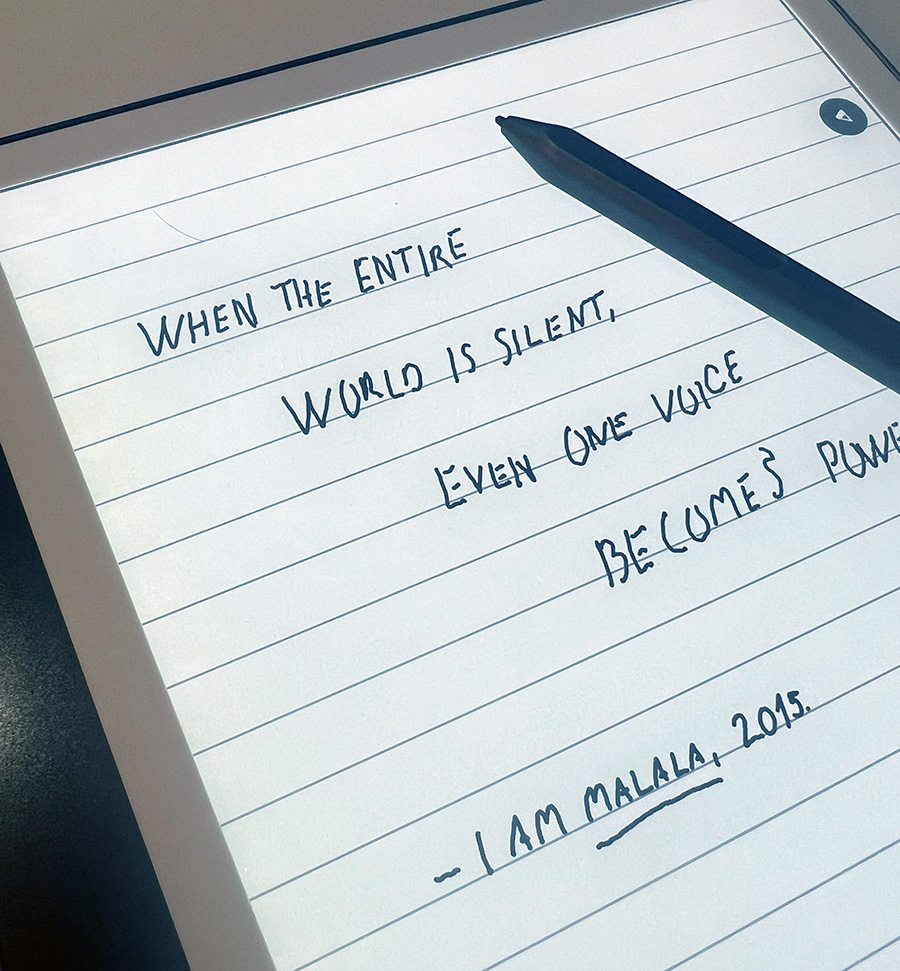 WHEN THE ENTIRE
WORLD IS SILENT,
EVEN ONE VOICE
BECOMES POWE
- I AM MALALA, 2015.